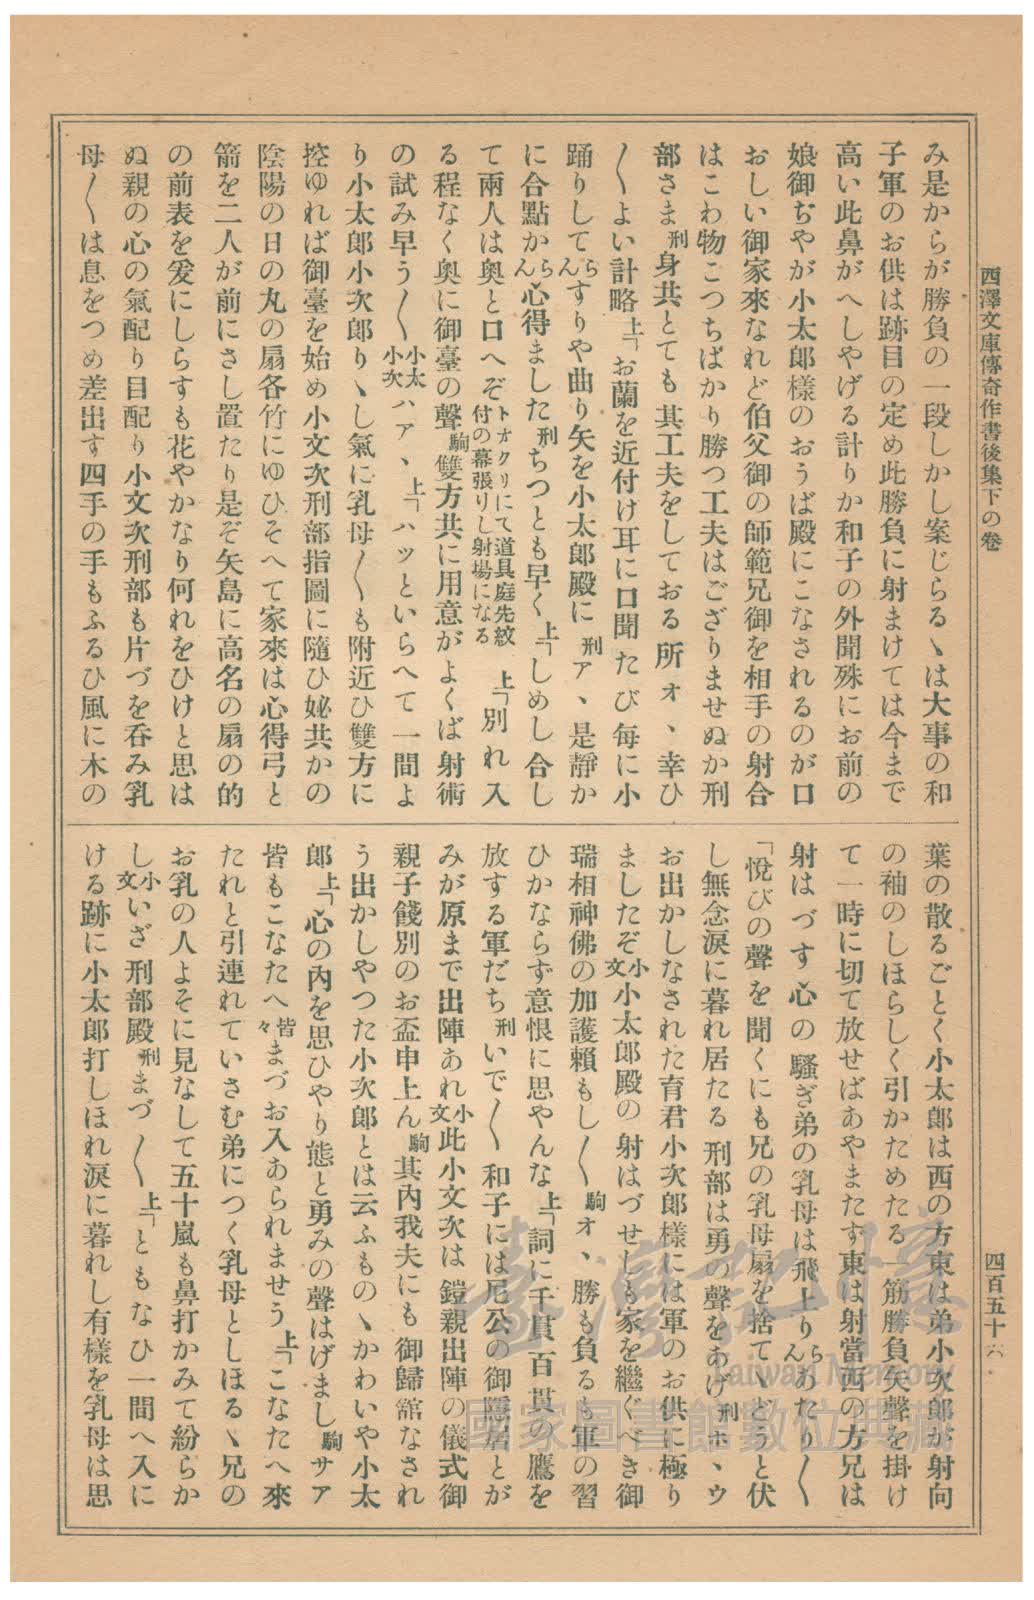 西澤文庫傳奇作書後集下の卷
四百五十六
み是からが勝負の一段しかし案じらるゝは大事の和
子軍のお供は跡目の定め此勝負に射まけては今まで
高い此鼻がへしやげる計りか和子の外聞殊にお前の
娘御ぢやが小太郎樣のおうば殿にこなされるのが口
おしい御家來なれど伯父御の師範兄御を相手の射合
はこわ物こつちばかり勝つ工夫はござりませぬか刑
部さま 刑 身共とても其工夫をしておる所 ォ、幸ひ
〳〵よい計略 上「お蘭を近付け耳に口聞たび每に小
踊りして らん すりや曲り矢を小太郎殿に 刑 ア、是靜か
に合點か らん 心得ました 刑 ちつとも早く 上「しめし合し
て兩人は奧と口へぞ トオクリにて道具庭先紋付の幕張りし射場になる 上「別れ入
る程なく奧に御臺の聲 駒 雙方共に用意がよくば射術
の試み早う〳〵 小太小次 ハア、 上「ハッといらへて一間よ
り小太郎小次郎りゝし氣に乳母〳〵も附近ひ雙方に
控ゆれば御臺を始め小文次刑部指圖に隨ひ妼共かの
陰陽の日の丸の扇各竹にゆひそへて家來は心得弓と
箭を二人が前にさし置たり是ぞ矢島に高名の扇の的
の前表を爰にしらすも花やかなり何れをひけと思は
ぬ親の心の氣配り目配り小文次刑部も片づを呑み乳
母〳〵は息をつめ差出す四手の手もふるひ風に木の
葉の散るごとく小太郎は西の方東は弟小次郎が射向
の袖のしほらしく引かためたる一筋勝負矢聲を掛け
て一時に切て放せばあやまたず東は射當西の方兄は
射はづす心の騷ぎ弟の乳母は飛上り らん あたり〳〵
「悅びの聲を聞くにも兄の乳母扇を捨てゝどうと伏
し無念淚に暮れ居たる刑部は勇の聲をあげ 刑 ホ、ウ
お出かしなされた育君小次郎樣には軍のお供に極り
ましたぞ 小文 小太郎殿の射はづせしも家を繼ぐべき御
瑞相神佛の加護賴もし〳〵 駒 オ、勝も負るも軍の習
ひかならず意恨に思やんな 上「詞に千貫百貫の鷹を
放する軍だち 刑 いで〳〵和子には尼公の御隱居とが
みが原まで出陣あれ 小文 此小文次は鎧親出陣の儀式御
親子餞別のお盃申上ん 駒 其內我夫にも御歸舘なされ
う出かしやつた小次郎とは云ふものゝかわいや小太
郎 上「心の內を思ひやり態と勇みの聲はげまし 駒 サア
皆もこなたへ 皆々 まづお入あられませう 上「こなたへ來
たれと引連れていさむ弟につく乳母としほるゝ兄の
お乳の人よそに見なして五十嵐も鼻打かみて紛らか
し 小文 いざ刑部殿 刑 まづ〳〵 上「ともなひ一間へ入に
ける跡に小太郎打しほれ淚に暮れし有樣を乳母は思
臺灣記憶
Taiwan Memory
國家圖書館數位典藏